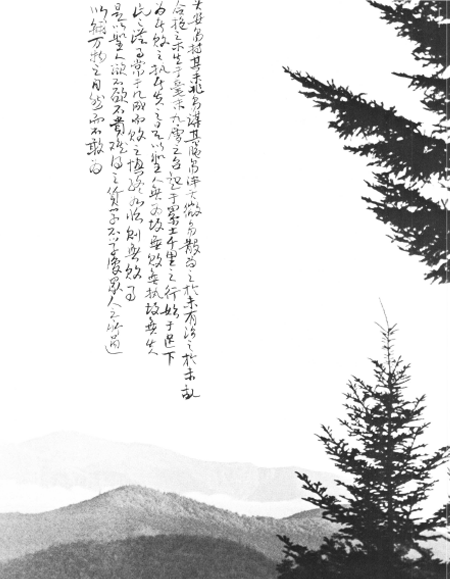 其安易持其未兆易謀其脆易泮其微易散為之於未有治之於未亂
合抱之木生于毫末九層之台起于累土千里之行始于足下
為者敗之執者失之是以聖人無為故無敗無執故無失
民之從事常于几成而敗之慎終如始則無敗事
是以聖人欲不欲不貴難得之貨學不學復眾人之所過
以輔万物之自然而不敢為